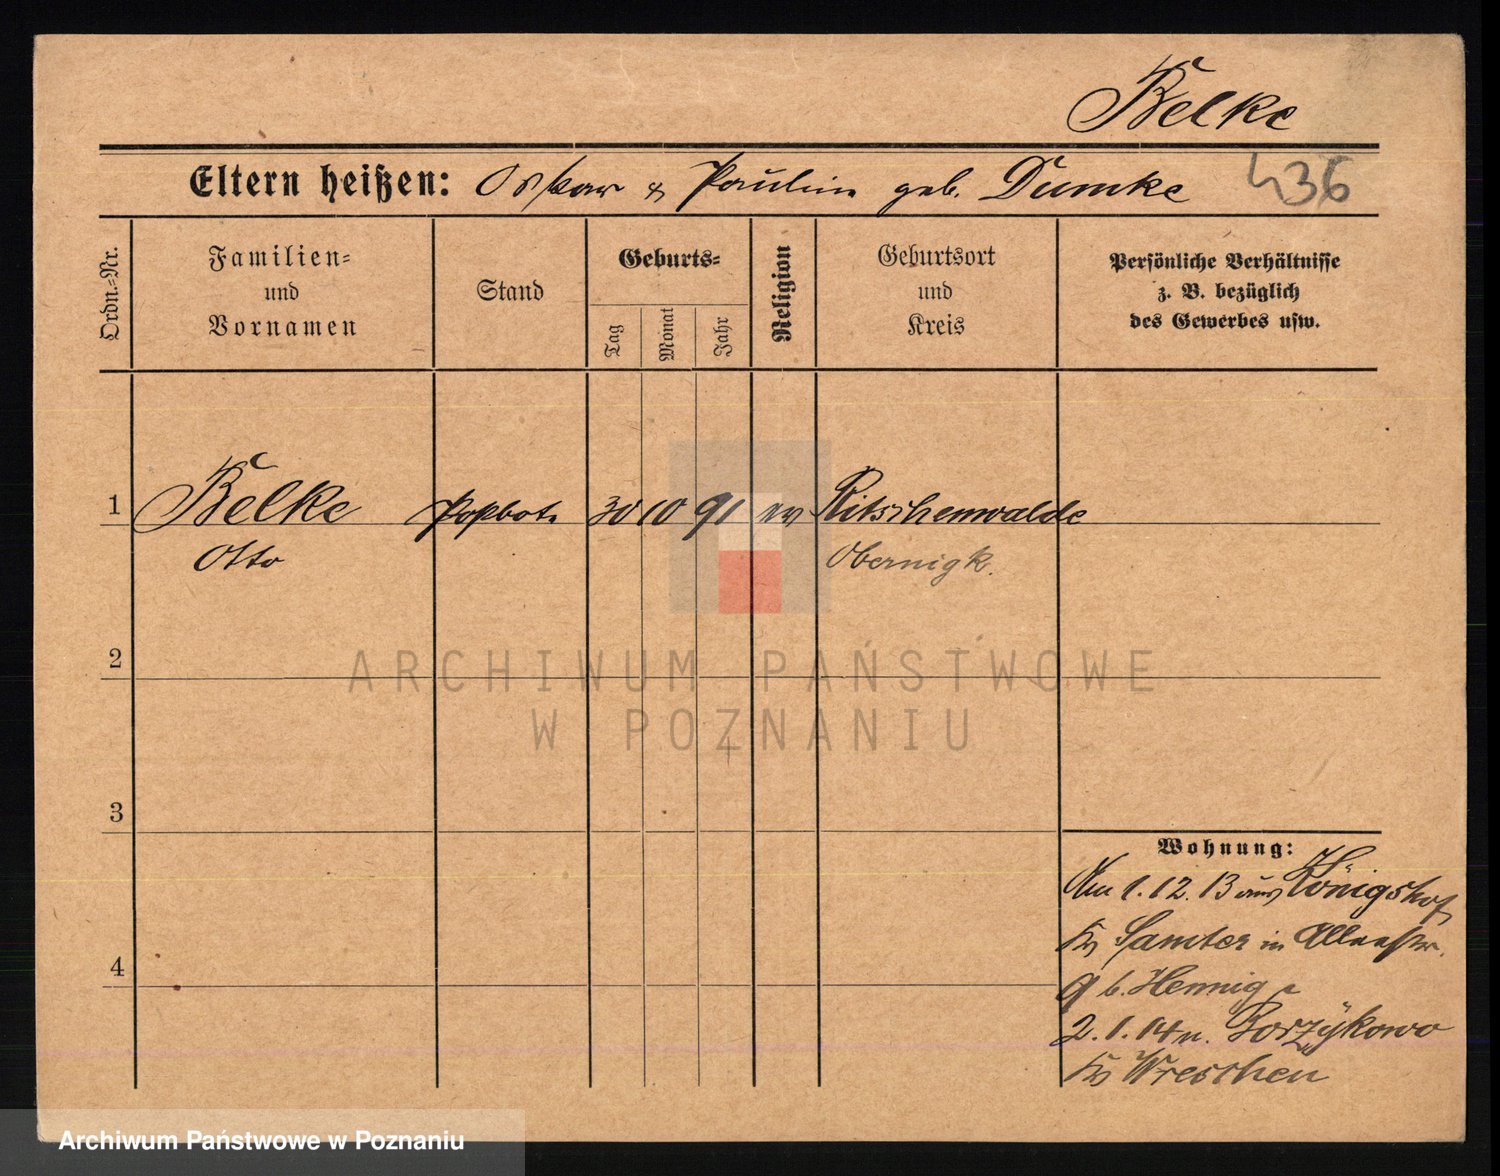 Belke
Eltern heißen: Oskar & Pauline geb. Dumke 436
Ordn.-Nr.
Familien-
und
Vornamen
Stand
Geburts-
Tag
Monat
Jahr
Religion
Geburtsort
und
Kreis
Persönliche Verhältnisse
z. B. bezüglich
des Gewerbes usw.
1 Belke Postbote 30 10 91 ev Ritschenwalde
Otto Obernigk.
2
ARCHIWUM PAŃSTWOWE
W POZNANIU
3
Wohnung:
Am 1.12.13 aus Königshof
Ks Samter in
4
9 b. Hennig
2.1.14 n. Borzykowo
Ks Wreschen
Archiwum Państwowe w Poznaniu